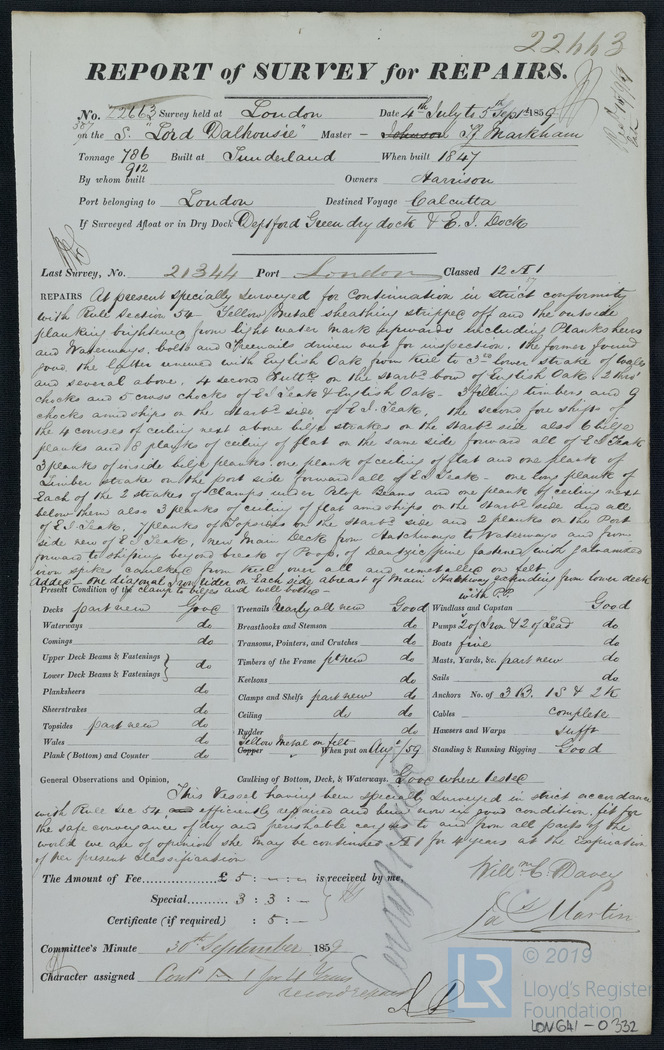 22443
REPORT of SURVEY for REPAIRS.
No. 22663 Survey held at London Date 4th July to 5th Sept 1859
on the S. "Lord Dalhousie" Master - Johnson Markham
Tonnage 786 Built at Sunderland When built 1847
912
By whom built Owners Harrison
Port belonging to London Destined Voyage Calcutta
If Surveyed Afloat or in Dry Dock Deptford Green dry dock & E. I. Dock
Last Survey, No. 21344 Port London Classed 12 A 1
REPAIRS At present specially surveyed for Continuation in strict conformity
with Rule Section 54 - Yellow Metal sheathing stripped off and the outside
planking brightened from light water mark upwards including Plank sheers
and Waterways, bolts and Treenails driven out for inspection, the former found
good, the latter renewed with English Oak from keel to 3rd lower strake of
and several above, 4 second on the starbd bow of English Oak, 2
chocks and 5 cross chocks of E I Teak & English Oak - 3 filling timbers and 9
chocks amidships on the starbd side of E. I. Teak, the second fore shifts of
the 4 courses of ceiling next above bilge strakes on the starbd side also 6 bilge
planks and 8 planks of ceiling of flat on the same side forward all of E I Teak
3 planks of inside bilge planks, one plank of ceiling of flat and one plank of
Limber strake on the port side forward all of E I Teak - one long plank of
Each of the 2 strakes of Clamps under Beams and one plank of ceiling next
below them also 3 planks of ceiling of flat amidships on the starbd side and all
of E. I. Teak, 7 planks of topsides on the starbd side and 2 planks on the Port
side new of E I Teak, new Main Deck from Hatchways to Waterways and from
forward to shifting beyond break of Poop, of Dantzic fine fastened with galvanized
iron spikes caulked from keel over all and on felt
Added - one diagonal Iron rider on Each side abreast of Main Hatchway extending from lower deck
Present Condition of the clamp to bilges and well bolted - with P.P.
Decks part new Good Treenails Nearly all new Good Windlass and Capstan Good
Waterways do Breasthooks and Stemson do Pumps 2 of Iron & 2 of Lead do
Comings do Transoms, Pointers, and Crutches do Boats five do
Upper Deck Beams & Fastenings do Timbers of the Frame pt new do Masts, Yards, &c. part new do
Lower Deck Beams & Fastenings Keelsons do Sails do
Planksheers do Clamps and Shelfs part new do Anchors No. of 3 B. 1 S & 2 K
Sheerstrakes do Ceiling do do Cables complete
Topsides part new do Rudder Hawsers and Warps sufft
Wales do Yellow Metal on felt
Plank (Bottom) and Counter do Copper When put on Augt 59 Standing & Running Rigging Good
General Observations and Opinion, Caulking of Bottom, Deck, & Waterways. Good where tested
This Vessel having been specially surveyed in strict accordance
with Rule Sec 54, efficiently repaired and being now in good condition, fit for
the safe conveyance of dry and perishable cargoes to and from all parts of the
world we are of opinion she may be continued A 1 for 4 years at the Expiration
of her present classification
The Amount of Fee............ £ 5 : - : - is received by me,
Special.......... 3 : 3 : -
Certificate (if required) : 5 : -
Willm C Davey
Jas Martin
Committee's Minute 30th September 1859
Character assigned Contd A 1 for 4 Years
© 2019
LR
Lloyd's Register
Foundation
LON641-0332